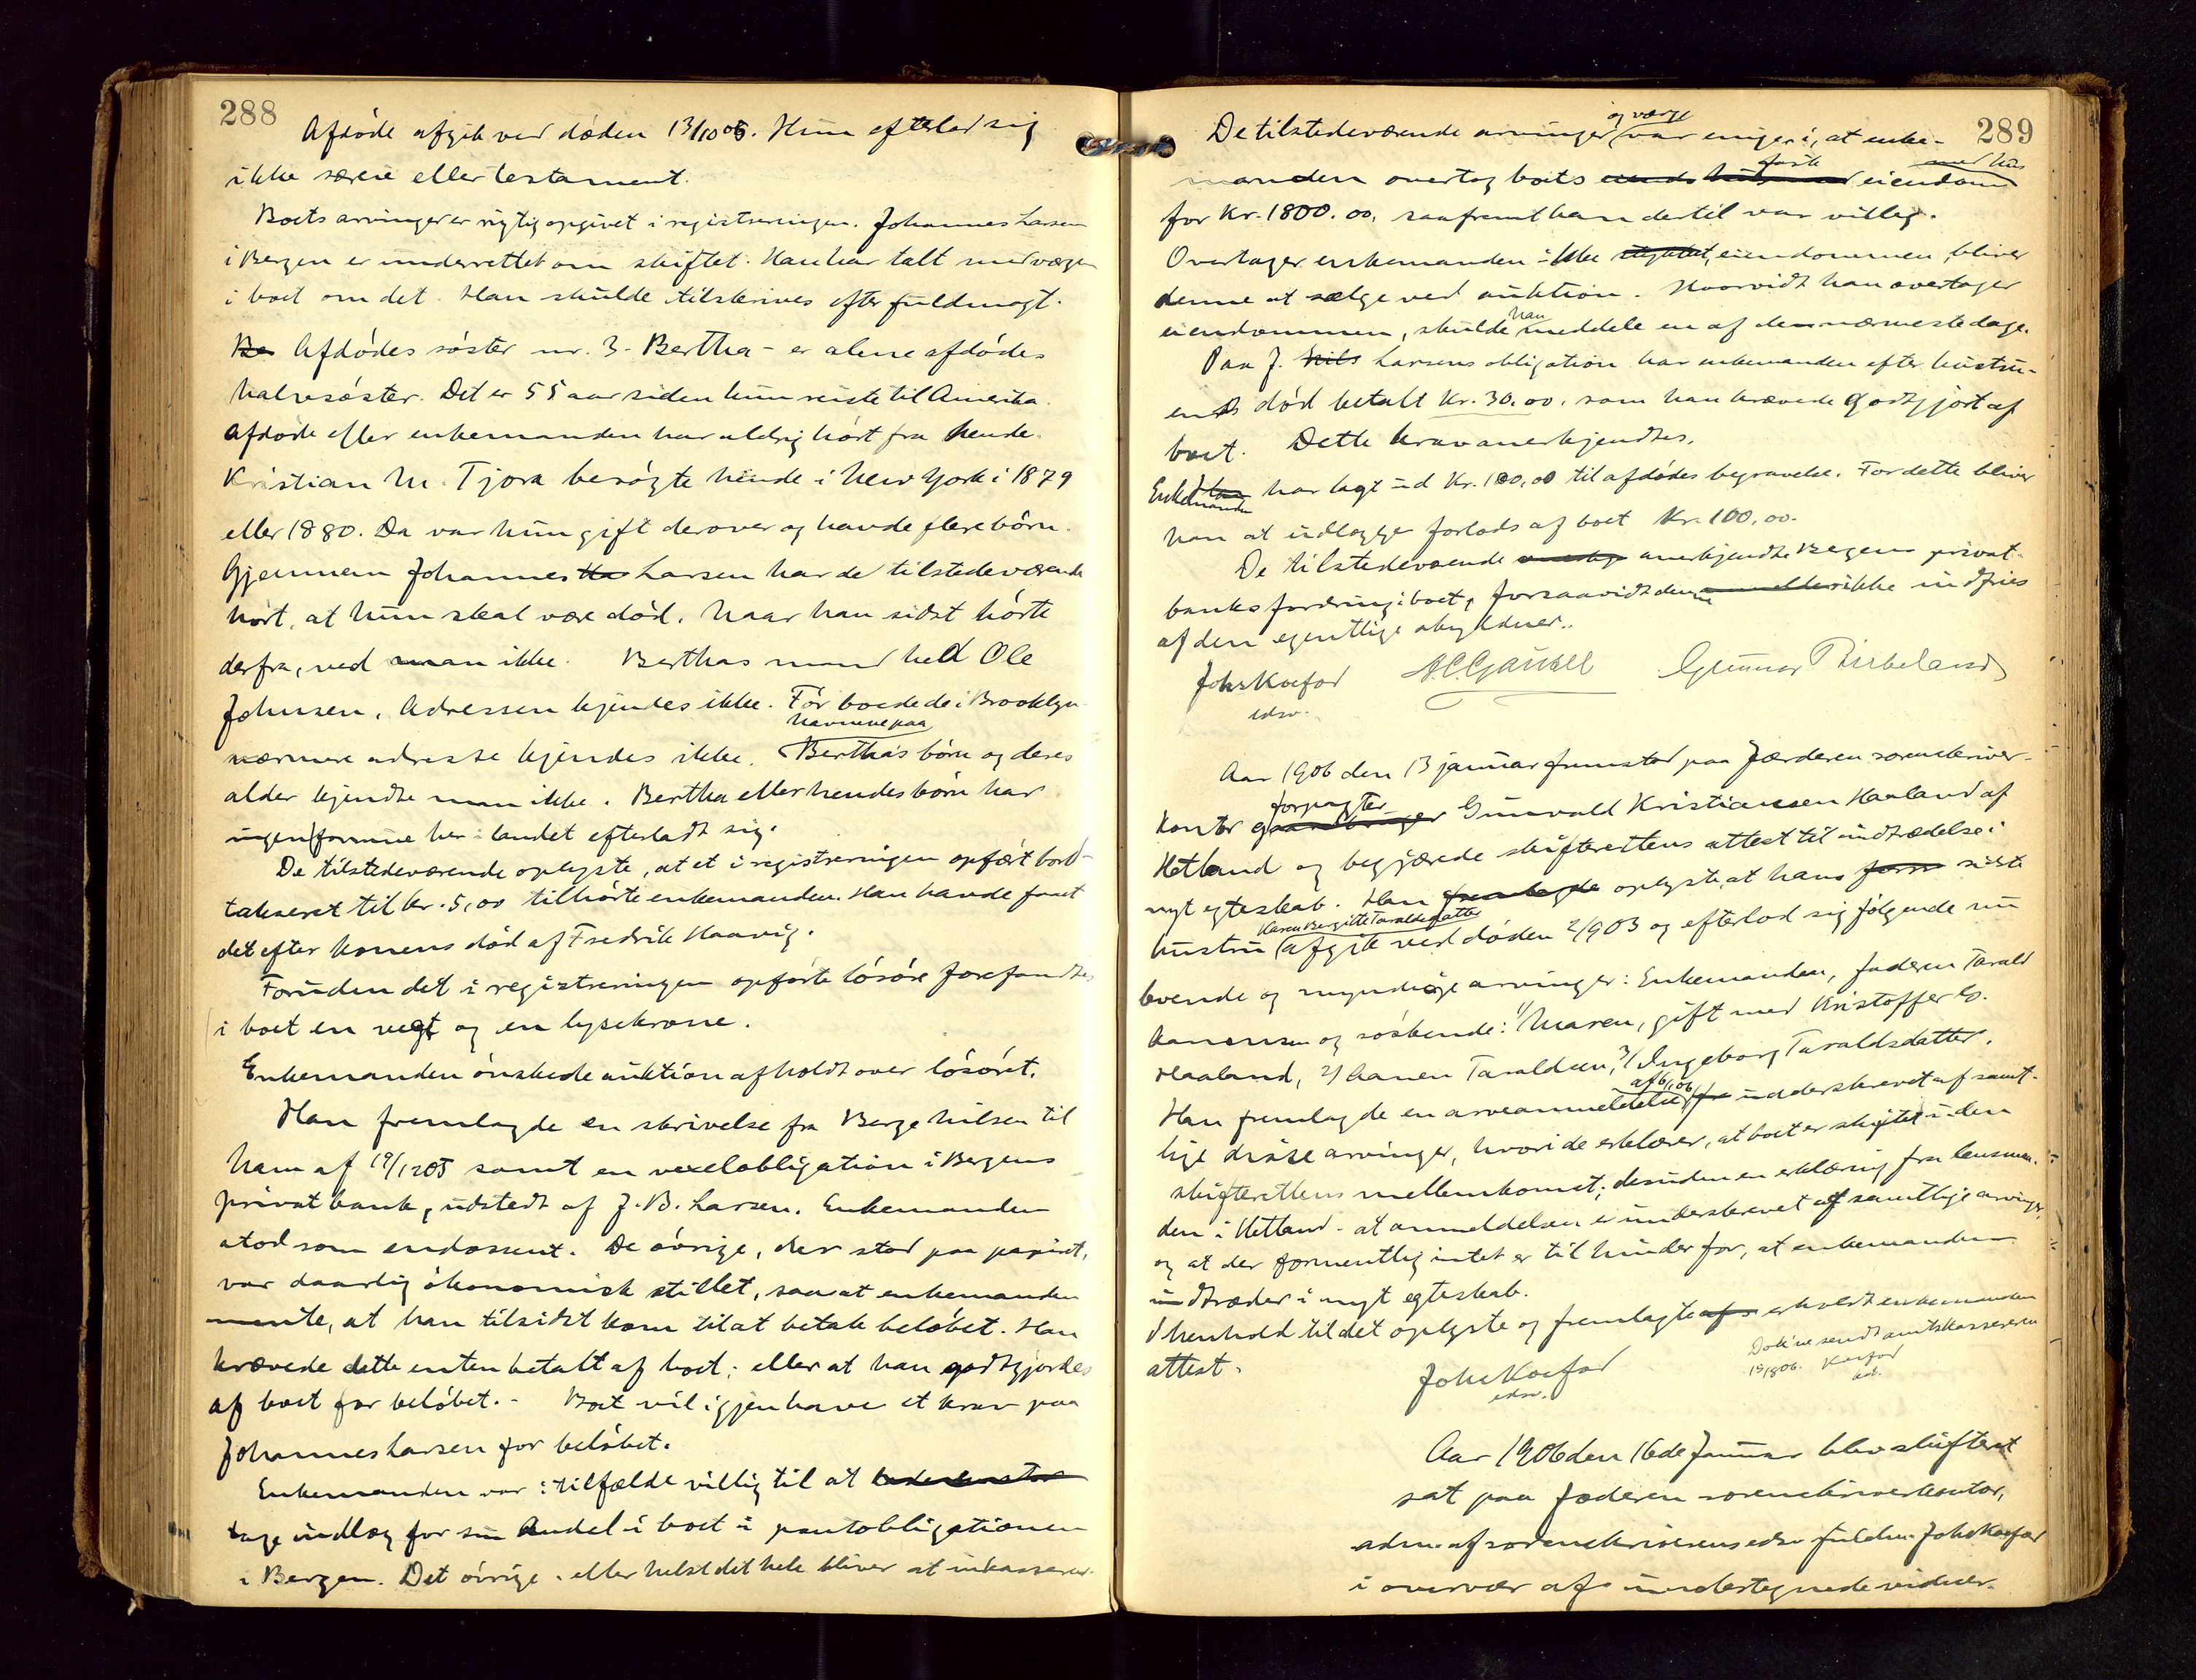 288
Afdöde afgik ved döden 13/10 05. Hun efterlod sig
ikke særeie eller testament.
Boets arvinger er rigtig opgivet i registreringen. Johannes Larsen
i Bergen er underrettet om skiftet. Han har talt med værgen
i boet om det. Han skulde tilskrives efter fuldmagt.
Be Afdödes söster nr. 3 - Bertha - er alene afdödes
halvesöster. Det er 55 aar siden hun reiste til Amerika.
Afdöde eller enkemanden har aldrig hört fra hende.
Kristian M. Tjora besögte hende i New York i 1879
eller 1880. Da var hun gift derover og havde flere börn.
Gjennem Johannes Larsen har de tilstedeværende
hört, at hun skal være död. Naar han sidst hörte
derfra, ved man ikke. Berthas mand hed Ole
Johnsen. Adressen kjendes ikke. Før boede de i Brooklyn
nærmere adresse kjendes ikke. Navnene paa Bertha's börn og deres
alder kjendte man ikke. Bertha eller hendes börn har
ingen formue her i landet efterladt sig.
De tilstedeværende oplyste, at et i registreringen opført bord
takseret til kr. 5,00 tilhörte enkemanden. Han havde faaet
det efter konens död af Fredrik Haavig.
Foruden det i registreringen opförte lösöre forefandtes
i boet en vegt og en lysekrone.
Enkemanden önskede auktion afholdt over lösöret.
Han fremlagde en skrivelse fra Berge Nilsen til
ham af 19/12 05 samt en vexelobligation i Bergens
privatbank, udstedt af J. B. Larsen. Enkemanden
stod som endossent. De övrige, der stod paa papiret,
var daarlig ökonomisk stillet, saa at enkemanden
mente, at han tilsidst kom til at betale belöbet. Han
krævede dette enten betalt af boet; eller at han godtgjordes
af boet for belöbet. - Boet vil igjen have et krav paa
Johannes Larsen for belöbet.
Enkemanden var i tilfælde villig til at
tage indlæg for sin Andel i boet i pantobligationen
i Bergen. Det övrige eller helst det hele bliver at inkassere.
289
De tilstedeværende arvinger og værge var enige i, at enke-
manden overtog boets faste eiendom med hus
for Kr. 1800.00, saafremt han dertil var villig.
Overtager enkemanden ikke eiendommen, bliver
denne at sælge ved auktion. Hvorvidt han overtager
eiendommen, skulde han meddele en af de nærmeste dage.
Paa J. Nils Larsens obligation har enkemanden efter hustru-
ens död betalt Kr. 30.00, som han krævede godtgjort af
boet. Dette krav anerkjendtes.
Enkemanden har lagt ud Kr. 100,00 til afdödes begravelse. For dette bliver
han at udlægge forlods af boet Kr. 100,00.
De tilstedeværende anerkjendte Bergens privat-
banks fordring i boet, forsaavidt denne ikke indfries
af den egentlige skyldner.
Johs Koefod A.C. Gausel Gunnar Birkeland
edsv.
Aar 1906 den 13 januar fremstod paa Jæderen sorenskriver-
kontor forpagter Gunvald Kristiansen Haaland af
Hetland og begjærede skifterettens attest til indtrædelse i
nyt egteskab. Han fremlagde oplyste, at hans sidste
hustru Karen Bergitte Taraldsdatter afgik ved döden 2/903 og efterlod sig følgende nu
levende og myndige arvinger: Enkemanden, faderen Tarald
Aanensen og söskende: 1/ Maren, gift med Kristoffer
Haaland, 2/ Aanen Taraldsen, 3/ Ingeborg Taraldsdatter.
Han fremlagde en arveanmeldelse af 6/1 06 underskrevet af samt-
lige disse arvinger, hvori de erklærer, at boet er skiftet uden
skifterettens mellemkomst; desuden en erklæring fra lensman-
den i Hetland - at anmeldelsen er underskrevet af samtlige arvinger
og at der formentlig intet er til hinder for, at enkemanden
indtræder i nyt egteskab.
I henhold til det oplyste og fremlagte erholdt enkemanden
attest.
Johs Koefod
edsv.
Dok'ne sendt amtskassereren
Koefod
Aar 1906 den 16de Januar blev skifteret
sat paa Jæderen sorenskriverkontor,
adm. af sorenskriverens edsv fuldm. Johs Koefod
i overvær af undertegnede vidner.